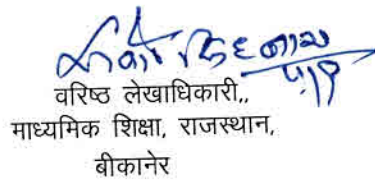 वरिष्ठ लेखाधिकारी,,
माध्यमिक शिक्षा, राजस्थान,
बीकानेर